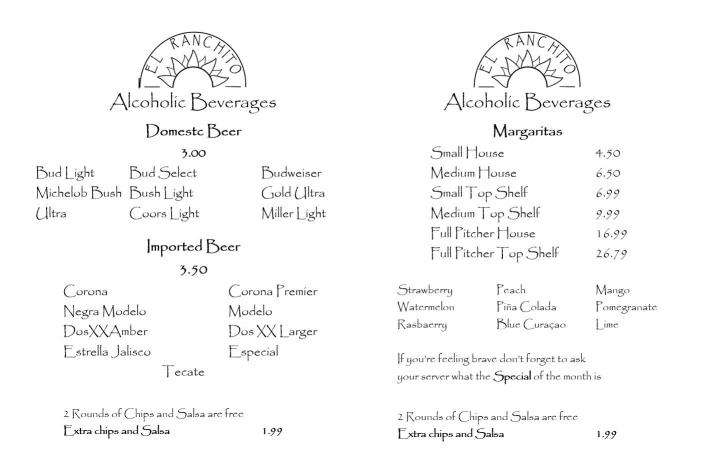 EL RANCHITO
Alcoholic Beverages
Domestc Beer
3.00
Bud Light Bud Select Budweiser
Michelob Bush Bush Light Gold Ultra
Ultra Coors Light Miller Light
Imported Beer
3.50
Corona Corona Premier
Negra Modelo Modelo
DosXXAmber Dos XX Larger
Estrella Jalisco Especial
Tecate
2 Rounds of Chips and Salsa are free
Extra chips and Salsa 1.99
EL RANCHITO
Alcoholic Beverages
Margaritas
Small House 4.50
Medium House 6.50
Small Top Shelf 6.99
Medium Top Shelf 9.99
Full Pitcher House 16.99
Full Pitcher Top Shelf 26.79
Strawberry Peach Mango
Watermelon Piña Colada Pomegranate
Rasbaerry Blue Curaçao Lime
If you're feeling brave don't forget to ask
your server what the Special of the month is
2 Rounds of Chips and Salsa are free
Extra chips and Salsa 1.99